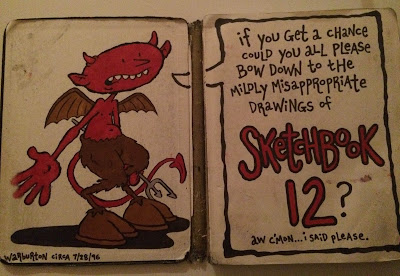 if you get a chance
could you all please
bow down to the
mildly misappropriate
drawings of
Sketchbook
12?
aw c'mon...i said please.
warburton circa 7/28/96